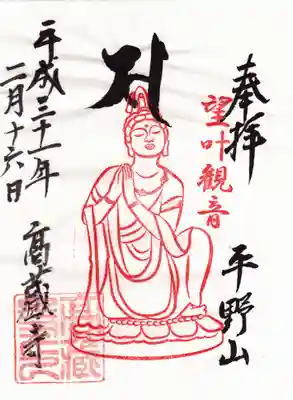 奉拝
望叶観音
平野山
高蔵寺
平成三十一年
二月十六日